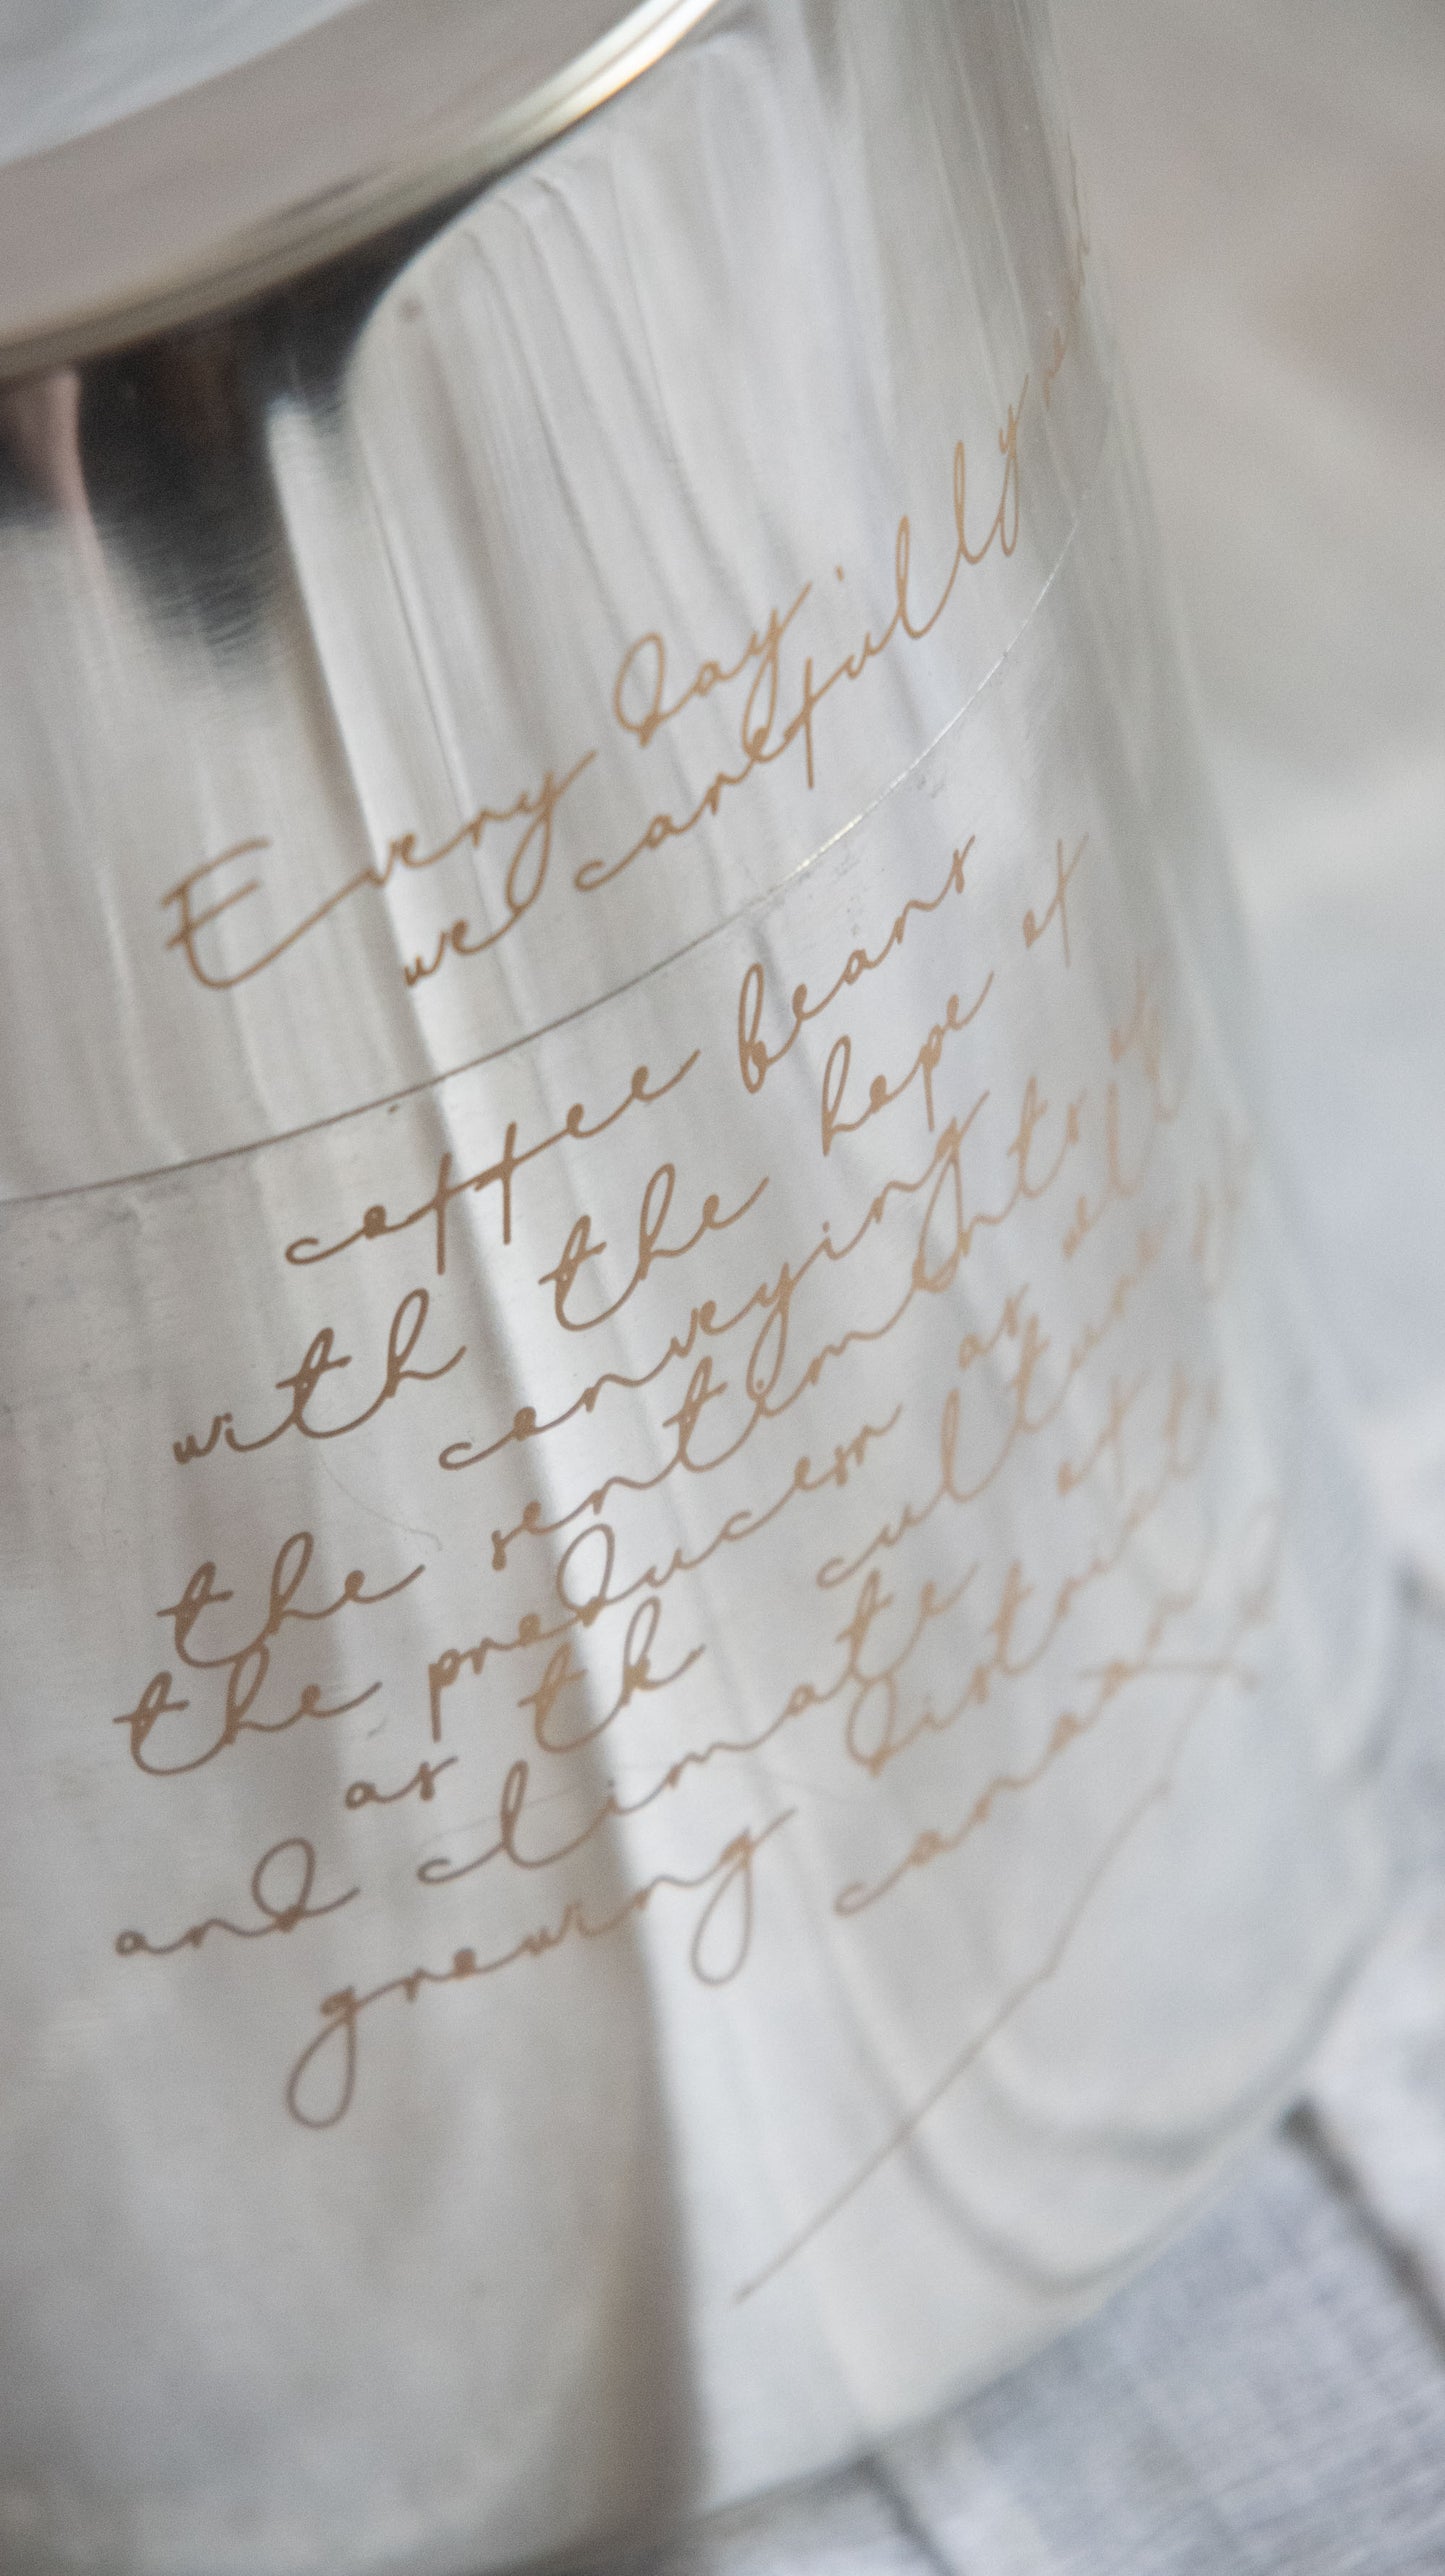 Every day,
we carefully
coffee beans
with the hope of
conveying
the sentiments of
the producers as
as culture
and climate of
growing district